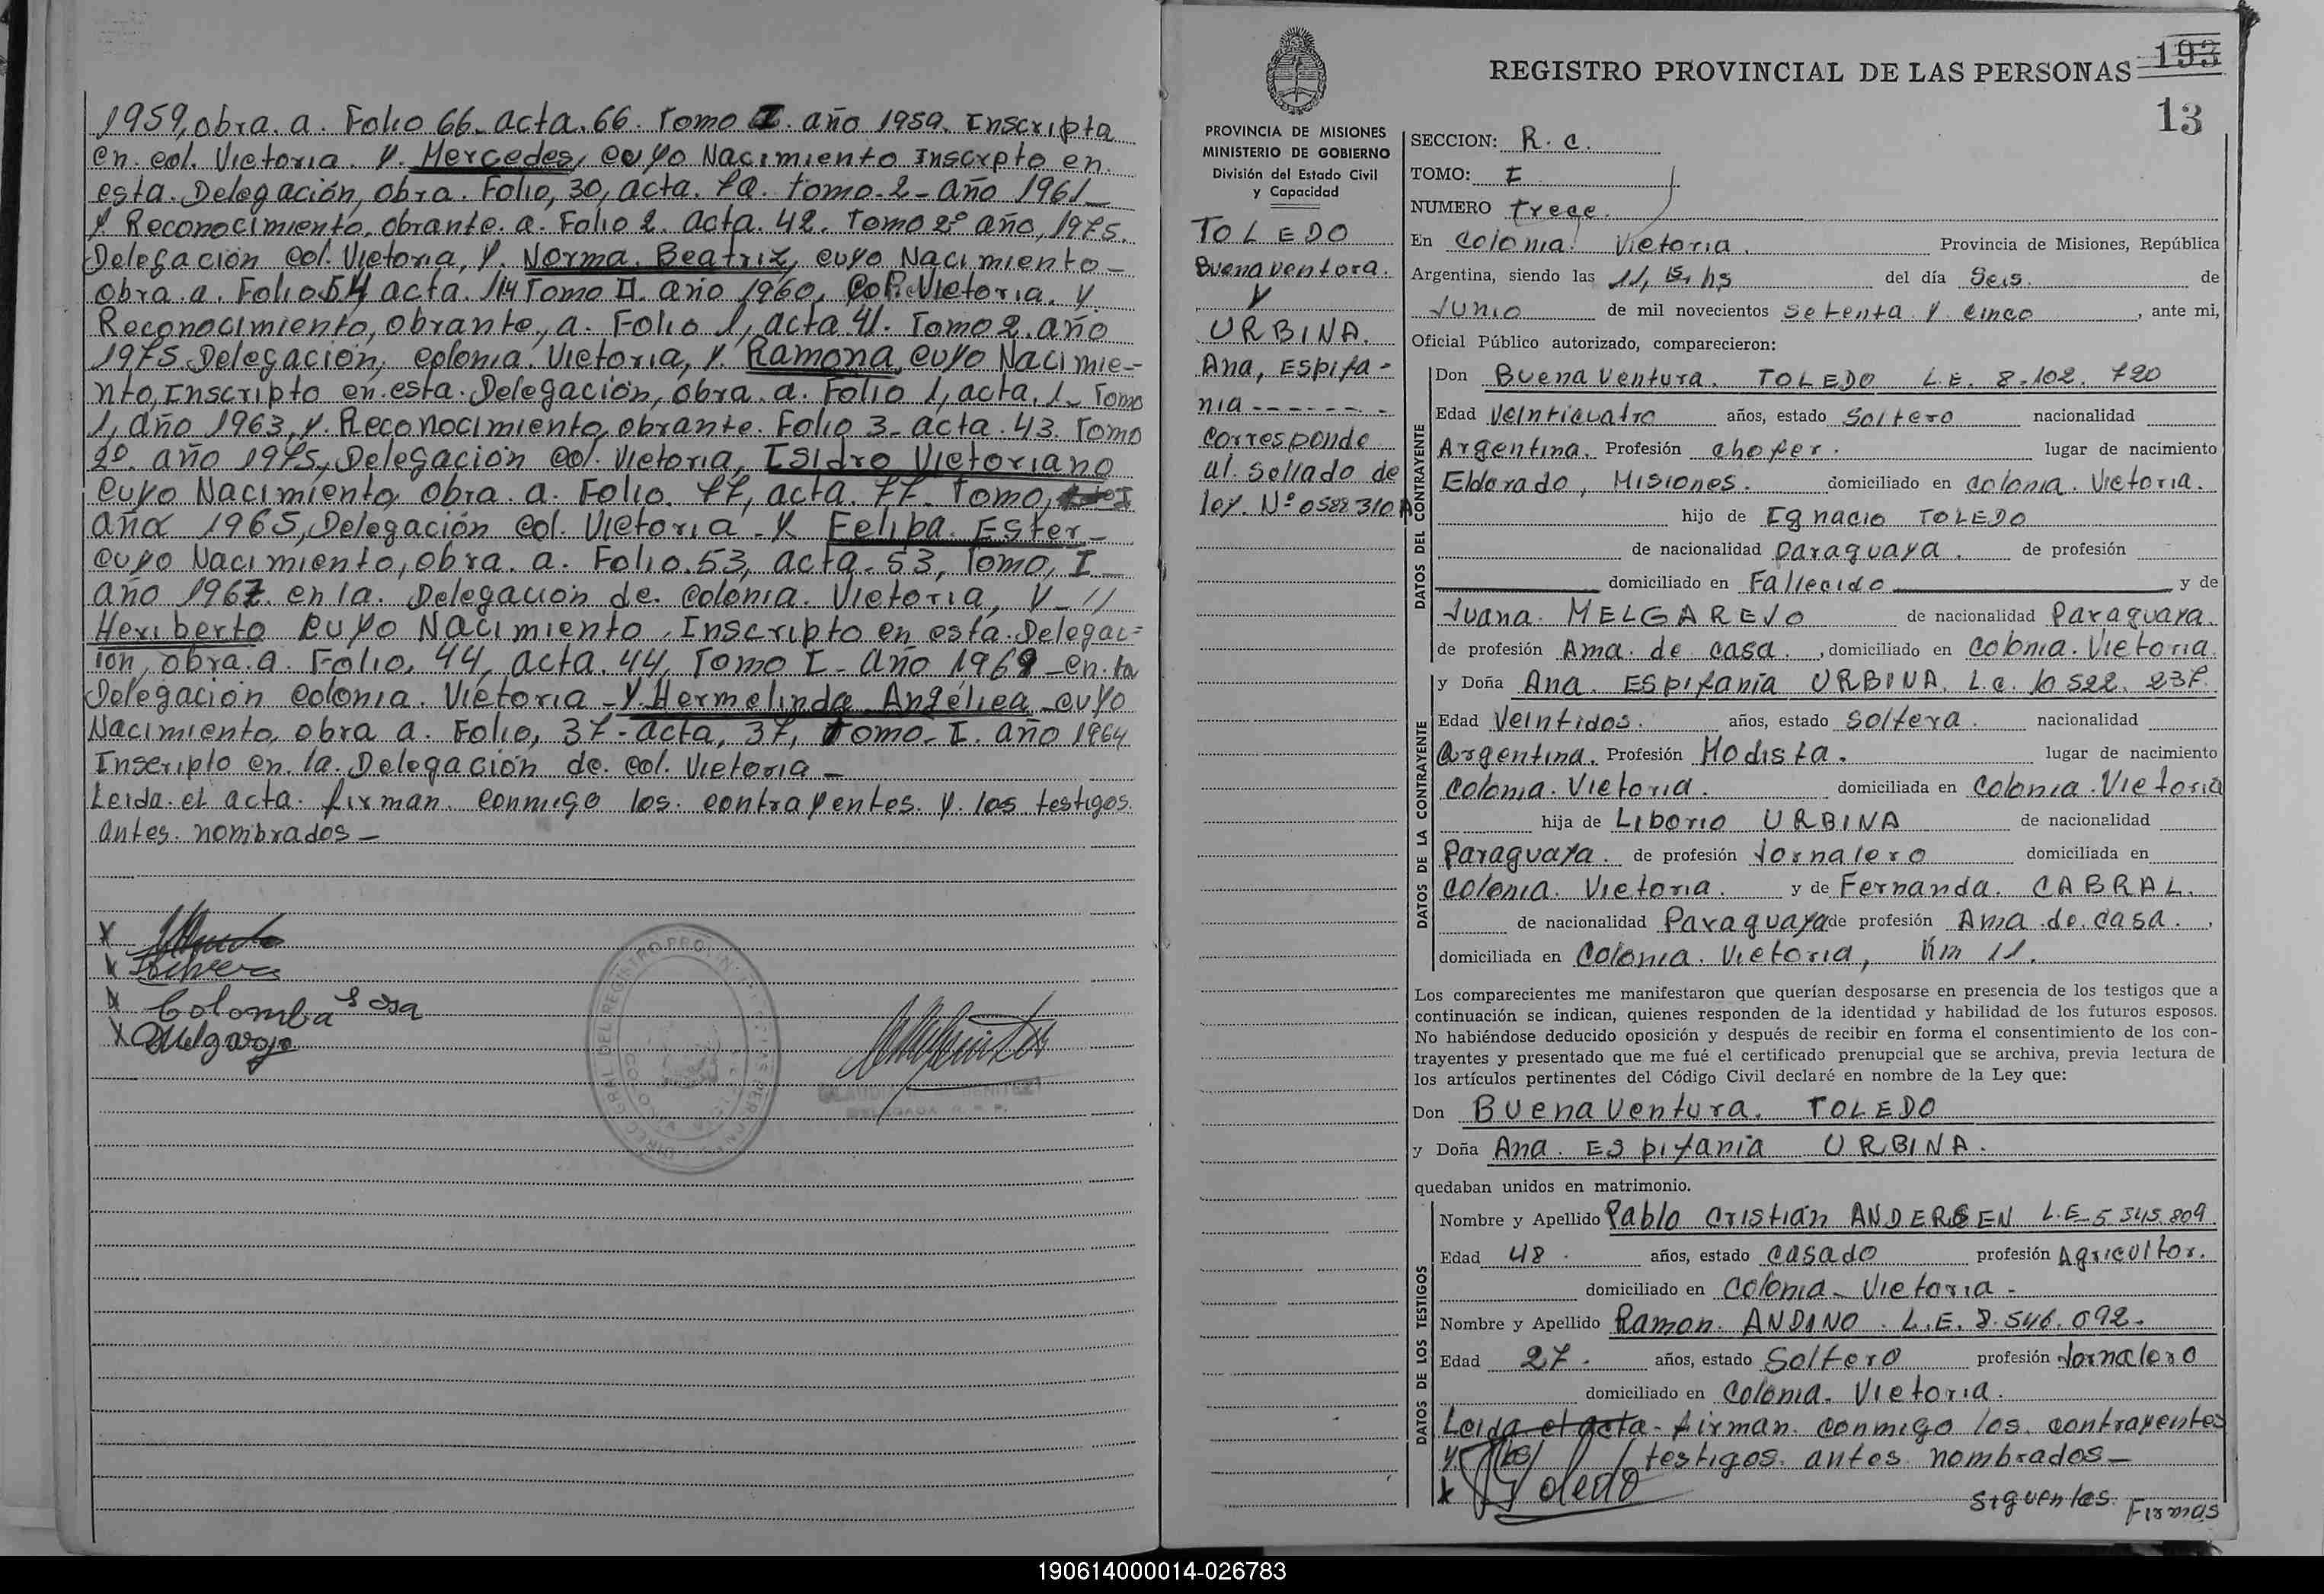 1959, obra. a. Folio 66. acta. 66. Tomo I. año 1959. Inscripta
en. col. Victoria. y. Mercedes, cuyo Nacimiento Inscrpto en.
esta. Delegación, obra. Folio, 30, acta. 70. tomo-2- año 1961
y Reconocimiento, obrante. a. Folio 2. acta. 42. Tomo 2º año, 1975.
Delegación col. Victoria, y. Norma. Beatriz, cuyo Nacimiento-
obra. a. Folio 54 acta. 114 Tomo II. año 1960, Col. Victoria. y
Reconocimiento, obrante, a. Folio 1, acta 41. Tomo 2. año
1975. Delegación, colonia. Victoria, y. Ramona, cuyo Nacimie-
nto, Inscripto en. esta. Delegación, obra. a. Folio 1, acta. 1. Tomo
1, año 1963, y. Reconocimiento, obrante. Folio 3- acta. 43. Tomo
2º. año 1975, Delegación col. Victoria, Isidro Victoriano
cuyo Nacimiento obra. a. Folio. 77, acta. 77. Tomo, I
año 1965, Delegación col. Victoria. y Felipa. Ester-
cuyo Nacimiento, obra. a. Folio. 53, acta. 53, Tomo, I
año 1967. en la. Delegación de. colonia. Victoria, y- //
Heriberto cuyo Nacimiento, Inscripto en esta. Delegac=
ion, obra. a. Folio, 44, acta. 44, Tomo I- año 1969 -en. la
Delegación colonia. Victoria - y. Hermelinda Angélica cuyo
Nacimiento, obra a. Folio, 37- acta, 37, Tomo. I. año 1964
Inscripto en. la. Delegación de. col. Victoria -
Leida. el acta. firman. conmigo los. contrayentes. y. los testigos.
antes. nombrados -
X
X
X Colomba Sosa
X Melgarejo
REGISTRO PROVINCIAL DE LAS PERSONAS 193
13
PROVINCIA DE MISIONES
MINISTERIO DE GOBIERNO
División del Estado Civil
y Capacidad
TOLEDO
Buenaventora.
y
URBINA.
Ana, Espifa-
nia -------
corresponde
al. sellado de
ley. Nº 0588310A
SECCION: R. C.
TOMO: I
NUMERO trece.
En Colonia Victoria. Provincia de Misiones, República
Argentina, siendo las 11,15, hs del día Seis. de
Junio de mil novecientos Setenta y cinco, ante mi,
Oficial Público autorizado, comparecieron:
DATOS DEL CONTRAYENTE
Don Buena Ventura. TOLEDO L.E. 8.102.720
Edad Veinticuatro años, estado Soltero nacionalidad
Argentina. Profesión chofer. lugar de nacimiento
Eldorado, Misiones. domiciliado en colonia. Victoria.
hijo de Ignacio TOLEDO
de nacionalidad Paraguaya. de profesión
domiciliado en Fallecido y de
Juana. MELGAREJO de nacionalidad Paraguaya.
de profesión Ama. de casa., domiciliado en Colonia. Victoria.
DATOS DE LA CONTRAYENTE
y Doña Ana. Espifania URBINA. L.C. 10 522. 237.
Edad Veintidos. años, estado Soltera. nacionalidad
Argentina. Profesión Modista. lugar de nacimiento
Colonia. Victoria. domiciliada en Colonia. Victoria
hija de Liborio URBINA de nacionalidad
Paraguaya. de profesión Jornalero domiciliada en
Colonia. Victoria. y de Fernanda. CABRAL.
de nacionalidad Paraguaya de profesión Ama. de. casa.,
domiciliada en Colonia. Victoria, Km 11.
Los comparecientes me manifestaron que querían desposarse en presencia de los testigos que a
continuación se indican, quienes responden de la identidad y habilidad de los futuros esposos.
No habiéndose deducido oposición y después de recibir en forma el consentimiento de los con-
trayentes y presentado que me fué el certificado prenupcial que se archiva, previa lectura de
los artículos pertinentes del Código Civil declaré en nombre de la Ley que:
Don Buena Ventura. TOLEDO
y Doña Ana. Espifania URBINA.
quedaban unidos en matrimonio.
DATOS DE LOS TESTIGOS
Nombre y Apellido Pablo Cristian ANDERSEN L.E-5.345.809
Edad 48. años, estado casado profesión Agricultor.
domiciliado en Colonia- Victoria-
Nombre y Apellido Ramon. ANDINO. L.E. 8.546.092.
Edad 27. años, estado Soltero profesión Jornalero
domiciliado en Colonia. Victoria.
Leida el acta- firman. conmigo los. contrayentes
y los testigos. antes nombrados-
x Toledo
Siguentes. Firmas
190614000014-026783